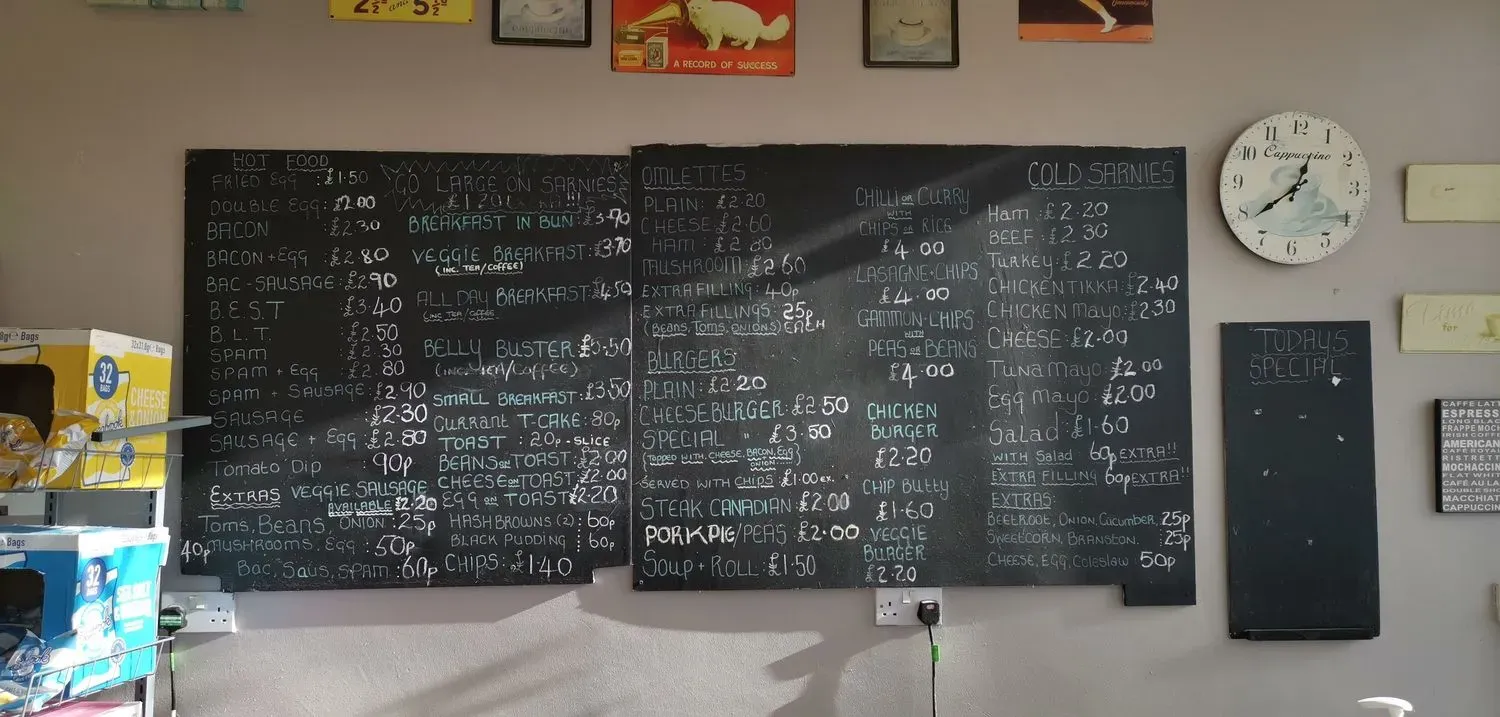 2½ and 5½
A RECORD OF SUCCESS
HOT FOOD
FRIED EGG : £1.50
DOUBLE EGG: £2.00
BACON £2.30
BACON+EGG £2.80
BAC-SAUSAGE: £2.90
B.E.S.T £3.40
B.L.T. £2.50
SPAM £2.30
SPAM + EGG £2.80
SPAM + SAUSAGE: £2.90
SAUSAGE £2.30
SAUSAGE + EGG £2.80
TOMATO DIP 90p
EXTRAS VEGGIE SAUSAGE
AVAILABLE £2.20
TOMS, BEANS, ONION : 25p
40p MUSHROOMS, EGG : 50p
BAC, SAUS, SPAM : 60p
GO LARGE ON SARNIES
£1.20! !!!
BREAKFAST IN BUN : £3.70
VEGGIE BREAKFAST: £3.70
(INC. TEA/COFFEE)
ALL DAY BREAKFAST: £4.50
(INC TEA/COFFEE
BELLY BUSTER £5.50
(INC. TEA/COFFEE)
SMALL BREAKFAST: £3.50
CURRANT T-CAKE: 80p
TOAST : 20p - SLICE
BEANS ON TOAST: £2.00
CHEESE ON TOAST: £2.00
EGG ON TOAST £2.20
HASH BROWNS (2) : 60p
BLACK PUDDING : 60p
CHIPS: £1.40
OMLETTES
PLAIN: £2.20
CHEESE: £2.60
HAM: £2.60
MUSHROOM: £2.60
EXTRA FILLING: 40p
EXTRA FILLINGS: 25p
(BEANS, TOMS, ONIONS) EACH
BURGERS
PLAIN: £2.20
CHEESEBURGER: £2.50
SPECIAL " £3.50
(TOPPED WITH, CHEESE, BACON, EGG
ONION )
SERVED WITH CHIPS £1.00 ex.
STEAK CANADIAN: £2.00
PORK PIE/PEAS £2.00
SOUP + ROLL: £1.50
CHILLI OR CURRY
WITH
CHIPS OR RICE
£4.00
LASAGNE+CHIPS
£4.00
GAMMON-CHIPS
WITH
PEAS OR BEANS
£4.00
CHICKEN
BURGER
£2.20
CHIP BUTTY
£1.60
VEGGIE
BURGER
£2.20
COLD SARNIES
Ham : £2.20
BEEF : £2.30
TURKEY: £2.20
CHICKEN TIKKA: £2.40
CHICKEN MAYO: £2.30
CHEESE: £2.00
TUNA MAYO: £2.00
EGG MAYO: £2.00
SALAD: £1.60
WITH SALAD 60p EXTRA!!
EXTRA FILLING 60p EXTRA!!
EXTRAS:
BEETROOT, ONION, CUCUMBER, 25p
SWEETCORN, BRANSTON. : 25p
CHEESE, EGG, COLESLAW 50p
Cappuccino
12
1
2
4
5
6
7
8
9
10
11
TODAYS
SPECIAL
for
CAFFE LATT
ESPRESS
LONG BLAC
FRAPPE MOCH
IRISH COFFE
AMERICAN
CAFÉ ROYAL
RISTRETT
MOCHACCIN
FLAT WHIT
CAFÉ AU LA
DOUBLE SHO
MACCHIAT
CAPPUCCIN
Bags
32
BAGS
CHEESE
& ONION
Bags
32